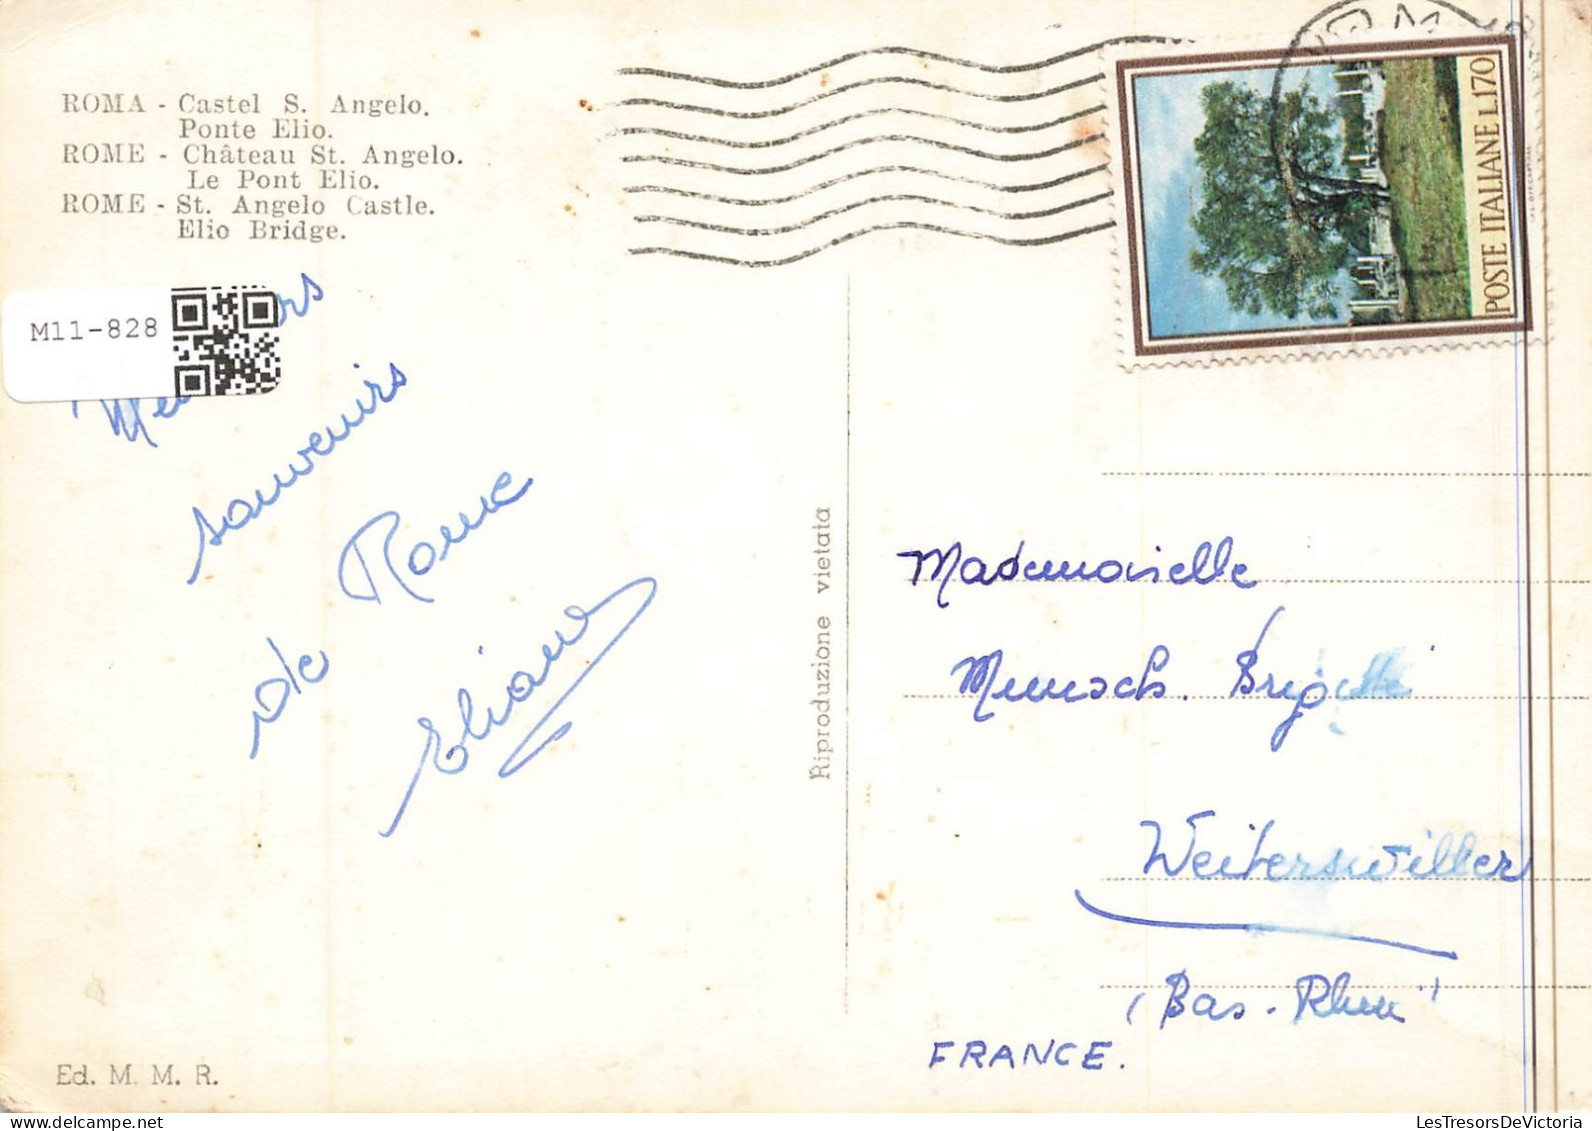 ROMA - Castel S. Angelo.
Ponte Elio.
ROME - Château St. Angelo.
Le Pont Elio.
ROME - St. Angelo Castle.
Elio Bridge.
M11-828
souvenirs
de Rome
Eliane
Ed. M. M. R.
Riproduzione vietata
POSTE ITALIANE L.170
Mademoiselle
Muensch. Brigitte
Weiterswiller
(Bas-Rhin)
FRANCE.
LesTresorsDeVictoria.com